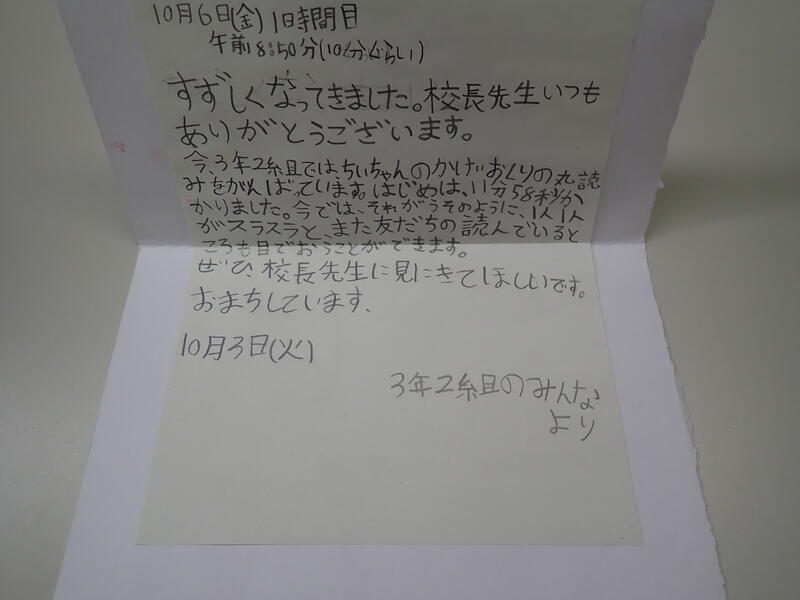 10月6日(金)1日時間目
午前8:50分(10分ぐらい)
すずしくなってきました。校長先生いつも
ありがとうございます。
今、3年2組ではちいちゃんのかげおくりの丸読
みをがんばっています。はじめは、11分58秒か
かりました。今では、それがうそのように、1人1人
がスラスラと、また友だちの読んでいると
ころも目でおうことができます。
ぜひ、校長先生に見にきてほしいです。
おまちしています、
10月3日(火)
3年2組のみんな
より